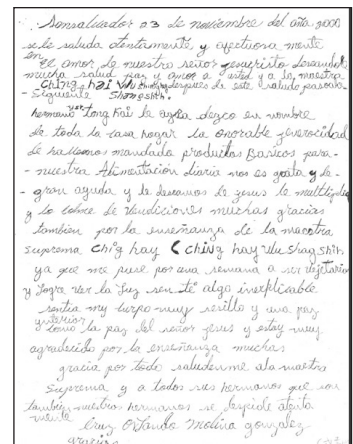 Sonsalvador 23 de noviembre del año 2000
se le saluda atentamente y afectuosa mente
en el amor de nuestro señor jesucristo deseandole
mucha salud paz y amor a usted y a la maestra
- Ching hai Wu después de este saludo paso a lo
- siguiente Shangshih.
hermano yuan tong hai le agra dezco en nombre
de toda la casa hogar la onorable generocidad
de habernos mandado productos Basicos para
- nuestra Alimentación diaria nos es grata y de
- gran ayuda y le deseamos le jesus le multiplique
y lo colme de vendiciones muchas gracias
tambien por la enseñanza de la maestra
suprema Ching hay (Ching hay Wu Shag Shih
ya que me puse por una semana a ser vejetariano
y logre ver la luz sen ti algo inexplicable
sentia my cuerpo muy sesillo y una paz
ynterior
como la paz del señor jesus y estoy muy
agradecido por la enseñanza muchas
gracia por todo saludenme ala maestra
suprema y a todos sus hermanos que son
tambien nuestros hermanos se despide atenta
mente
Cruz Orlando Molina gonzalez
gracias